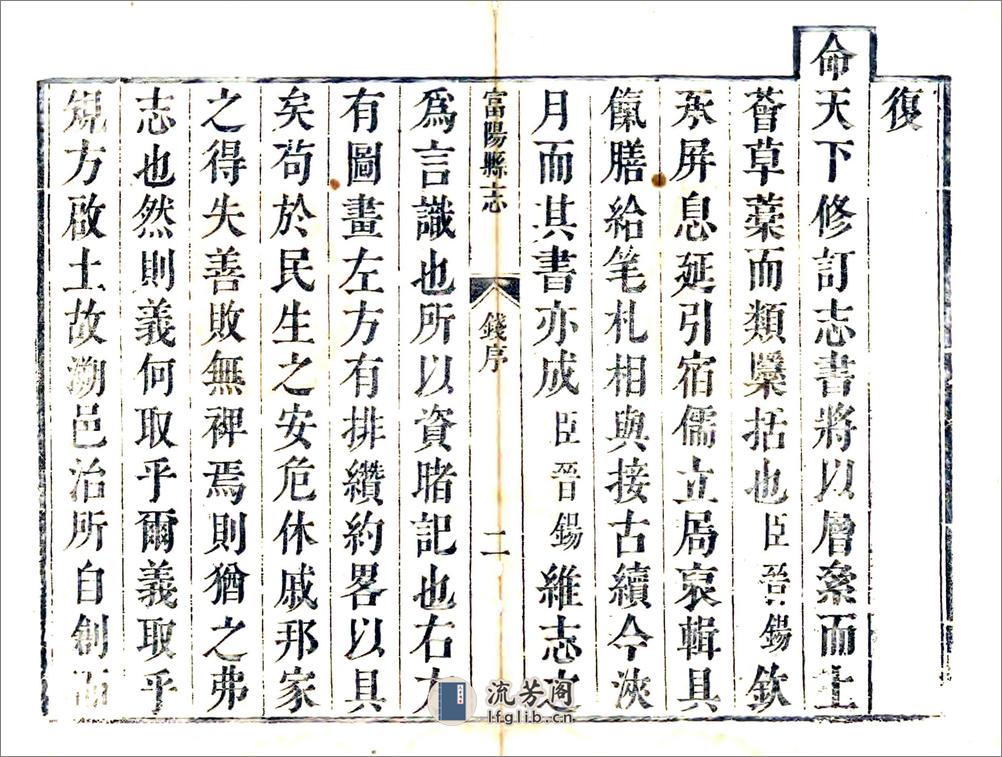 復
命天下修訂志書將以層絫而上
薈草藁而類櫽括也臣晉錫欽
承屏息延引宿儒立局裒輯具
餼膳給笔札相與接古續今浹
月而其書亦成臣晉錫維志之
富陽縣志 錢序 二
爲言識也所以資睹記也右方
有圖畫左方有排纘約畧以具
矣茍於民生之安危休戚邦家
之得失善敗無裨焉則猶之弗
志也然則義何取乎爾義取乎
規方啟土故溯邑治所自創而
流芳阁
lfglib.cn